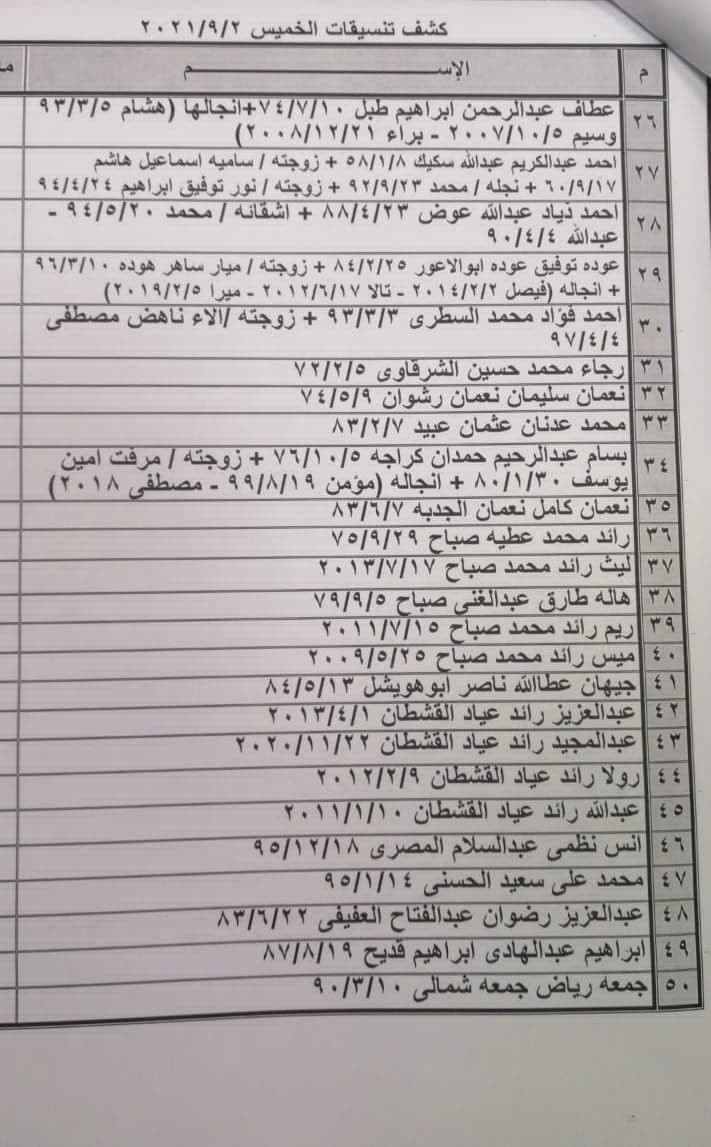 كشف تنسيقات الخميس ٢٠٢١/٩/٢
م الإســـــــــم
٢٦ عطاف عبدالرحمن ابراهيم طبل ٧٤/٧/١٠+انجالها (هشام ٩٣/٣/٥
وسيم ٢٠٠٧/١٠/٥ - براء ٢٠٠٨/١٢/٢١)
٢٧ احمد عبدالكريم عبدالله سكيك ٥٨/١/٨ + زوجته / ساميه اسماعيل هاشم
٦٠/٩/١٧ + نجله / محمد ٩٢/٩/٢٣ + زوجته / نور توفيق ابراهيم ٩٤/٤/٢٤
٢٨ احمد ذياد عبدالله عوض ٨٨/٤/٢٣ + اشقائه / محمد ٩٤/٥/٢٠ -
عبدالله ٩٠/٤/٤
٢٩ عوده توفيق عوده ابوالاعور ٨٤/٢/٢٥ + زوجته / ميار ساهر هوده ٩٦/٣/١٠
+ انجاله (فيصل ٢٠١٤/٢/٢ - تالا ٢٠١٢/٦/١٧ - ميرا ٢٠١٩/٢/٥)
٣٠ احمد فؤاد محمد السطرى ٩٣/٣/٣ + زوجته /الاء ناهض مصطفى
٩٧/٤/٤
٣١ رجاء محمد حسين الشرقاوى ٧٢/٢/٥
٣٢ نعمان سليمان نعمان رشوان ٧٤/٥/٩
٣٣ محمد عدنان عثمان عبيد ٨٣/٢/٧
٣٤ بسام عبدالرحيم حمدان كراجه ٧٦/١٠/٥ + زوجته / مرفت امين
يوسف ٨٠/١/٣٠ + انجاله (مؤمن ٩٩/٨/١٩ - مصطفى ٢٠١٨)
٣٥ نعمان كامل نعمان الجدبه ٨٣/٦/٧
٣٦ رائد محمد عطيه صباح ٧٥/٩/٢٩
٣٧ ليث رائد محمد صباح ٢٠١٣/٧/١٧
٣٨ هاله طارق عبدالغنى صباح ٧٩/٩/٥
٣٩ ريم رائد محمد صباح ٢٠١١/٧/١٥
٤٠ ميس رائد محمد صباح ٢٠٠٩/٥/٢٥
٤١ جيهان عطاالله ناصر ابوهويشل ٨٤/٥/١٣
٤٢ عبدالعزيز رائد عياد القشطان ٢٠١٣/٤/١
٤٣ عبدالمجيد رائد عياد القشطان ٢٠٢٠/١١/٢٢
٤٤ رولا رائد عياد القشطان ٢٠١٢/٢/٩
٤٥ عبدالله رائد عياد القشطان ٢٠١١/١/١٠
٤٦ انس نظمى عبدالسلام المصرى ٩٥/١٢/١٨
٤٧ محمد على سعيد الحسنى ٩٥/١/١٤
٤٨ عبدالعزيز رضوان عبدالفتاح العفيفى ٨٣/٦/٢٢
٤٩ ابراهيم عبدالهادى ابراهيم قديح ٨٧/٨/١٩
٥٠ جمعه رياض جمعه شمالى ٩٠/٣/١٠